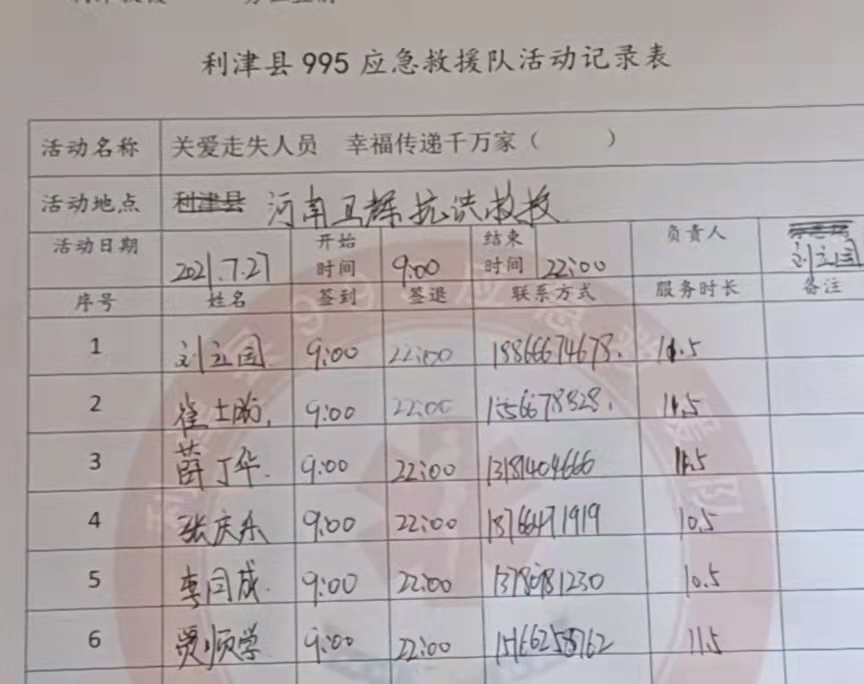 利津县995应急救援队活动记录表
活动名称 关爱走失人员 幸福传递千万家（ ）
活动地点 利津县 河南卫辉抗洪救援
活动日期 2021.7.27 开始时间 9:00 结束时间 22:00 负责人 刘立国
序号 姓名 签到 签退 联系方式 服务时长 备注
1 刘立国 9:00 22:00 18866674678. 11.5
2 崔士胜, 9:00 22:00 11.5
3 薛丁华. 9:00 22:00 13181404666 11.5
4 张庆东 9:00 22:00 18766471919 10.5
5 李同成. 9:00 22:00 10.5
6 贾顺学 9:00 22:00 11.5